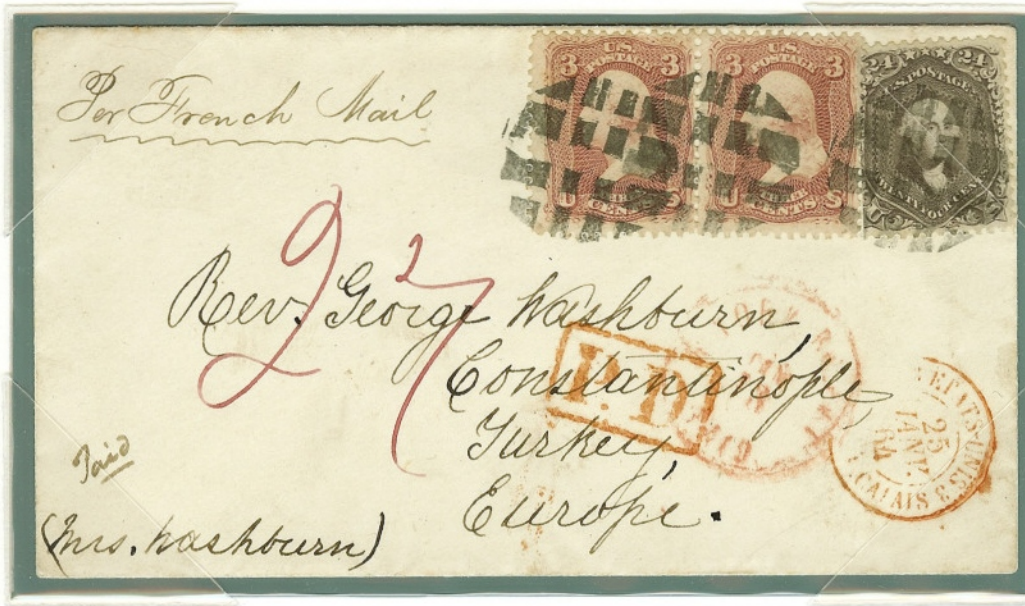 Per French Mail
3 U.S. POSTAGE 3
U CENTS S
3 U.S. POSTAGE 3
U THREE CENTS S
24 24
U.S. POSTAGE
TWENTY FOUR CENTS
U
27
Rev. George Washburn,
Constantinople,
Turkey,
Europe.
P.D.
PAID
ETATS-UNIS
25
JANV.
64
CALAIS
Paid
(Mrs. Washburn)